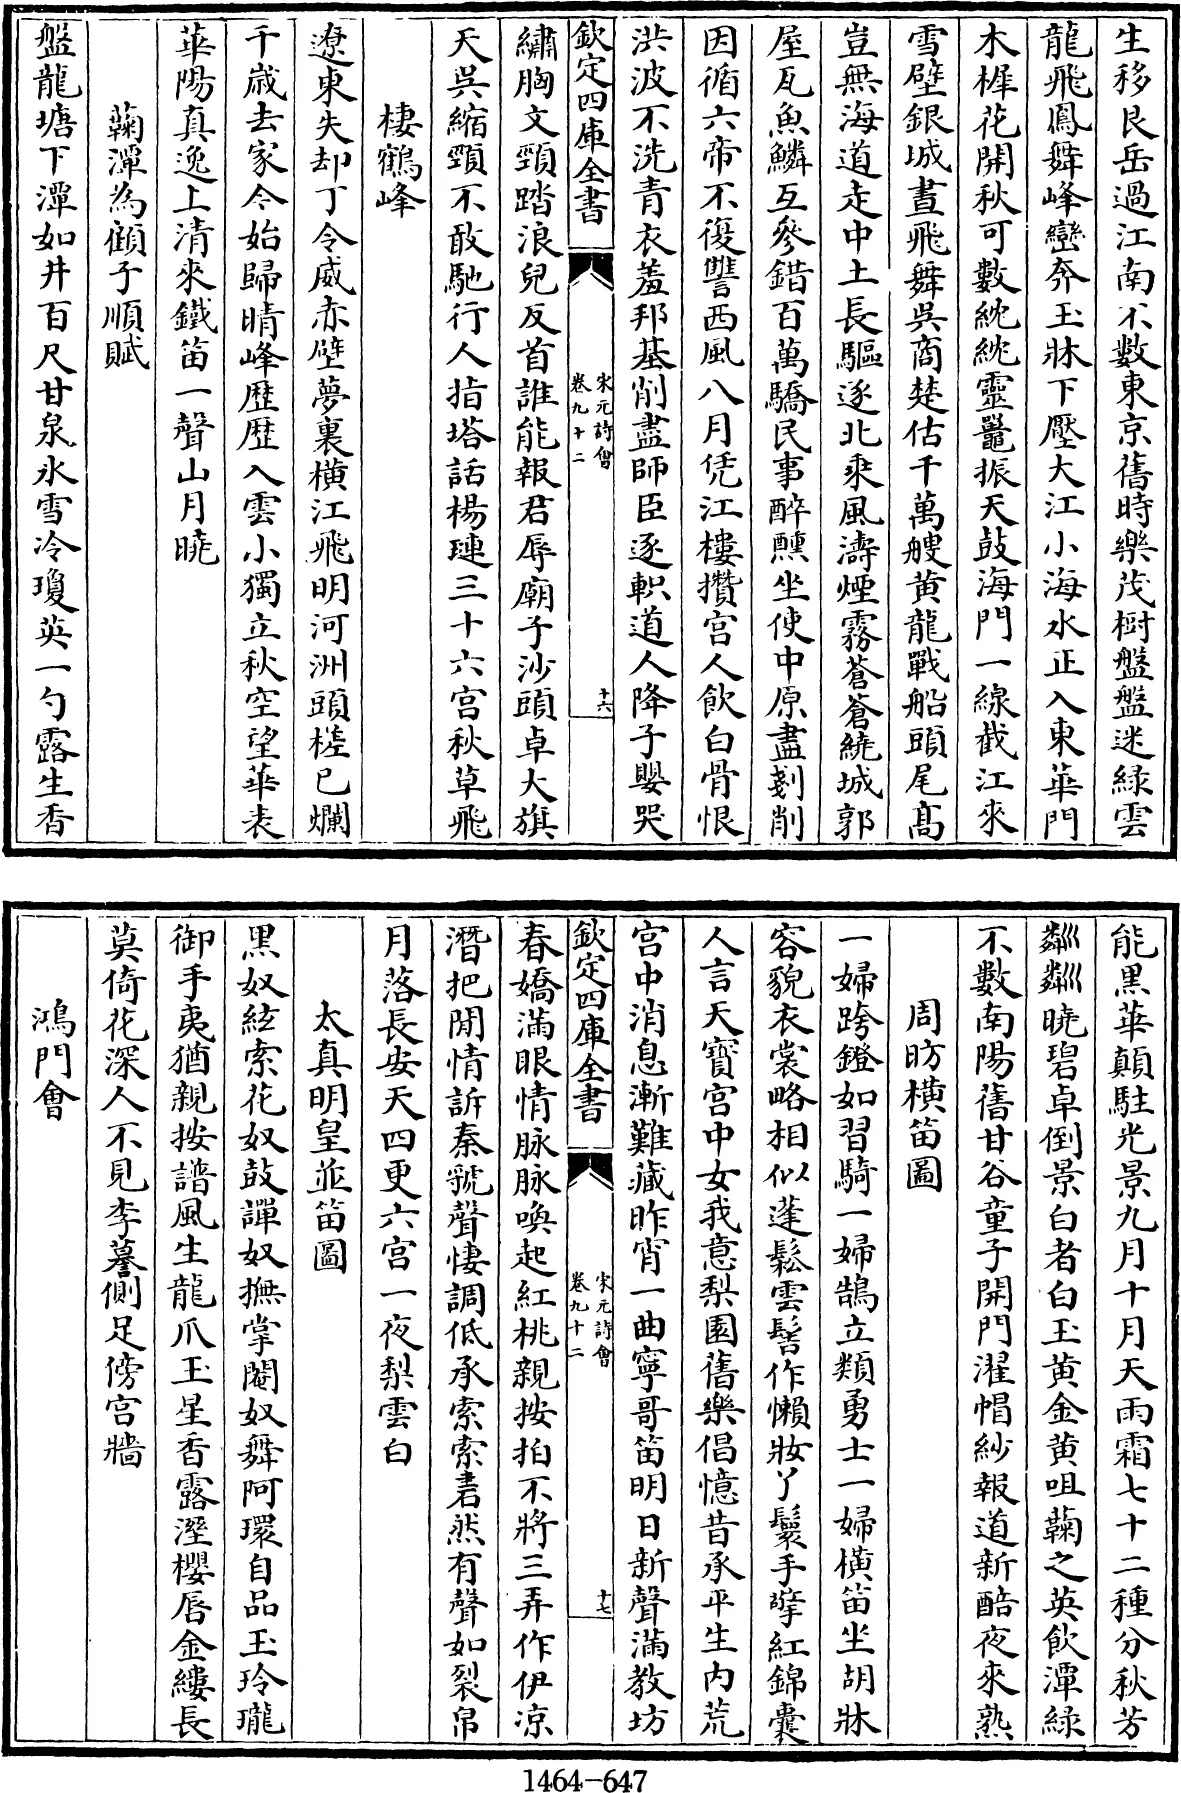 生移艮岳過江南不數東京舊時樂茂樹盤盤迷綠雲
龍飛鳳舞峰巒奔玉牀下壓大江小海水正入東華門
木樨花開秋可數紞紞靈鼉振天鼓海門一線截江來
雪壁銀城晝飛舞吳商楚估千萬艘黄龍戰船頭尾髙
豈無海道走中土長驅逐北乘風濤煙霧蒼蒼繞城郭
屋瓦魚鱗互參錯百萬驕民事醉醺坐使中原盡剗削
因循六帝不復讐西風八月凭江樓攢宫人飲白骨恨
洪波不洗青衣羞邦基削盡師臣逐軹道人降子嬰哭
欽定四庫全書
宋元詩會
卷九十二
十六
繡胸文頸踏浪兒反首誰能報君辱廟子沙頭卓大旗
天吳縮頸不敢馳行人指塔話楊璉三十六宫秋草飛
棲鶴峰
遼東失却丁令威赤壁夢裏横江飛明河洲頭槎已爛
千歳去家今始歸晴峰歴歴入雲小獨立秋空望華表
華陽真逸上清來鐵笛一聲山月曉
蘜潭為顧子順賦
盤龍塘下潭如井百尺甘泉氷雪冷瓊英一勺露生香
能黑華顛駐光景九月十月天雨霜七十二種分秋芳
粼粼曉碧卓倒景白者白玉黄金黄咀蘜之英飲潭緑
不數南陽舊甘谷童子開門濯帽紗報道新醅夜來熟
周昉横笛圖
一婦跨鐙如習騎一婦鵠立類勇士一婦横笛坐胡牀
容貌衣裳略相似蓬鬆雲髻作懶妝丫鬟手擎紅錦囊
人言天寳宫中女我意梨園舊樂倡憶昔承平生内荒
宫中消息漸難藏昨宵一曲寧哥笛明日新聲滿教坊
欽定四庫全書
宋元詩會
卷九十二
十七
春嬌滿眼情脉脉喚起紅桃親按拍不將三弄作伊凉
潛把閒情訴秦虢聲悽調低承索索砉然有聲如裂帛
月落長安天四更六宫一夜梨雲白
太真明皇並笛圖
黑奴絃索花奴鼓譚奴撫掌閹奴舞阿環自品玉玲瓏
御手夷猶親按譜風生龍爪玉星香露溼櫻唇金縷長
莫倚花深人不見李謩側足傍宫牆
鴻門會
1464-647